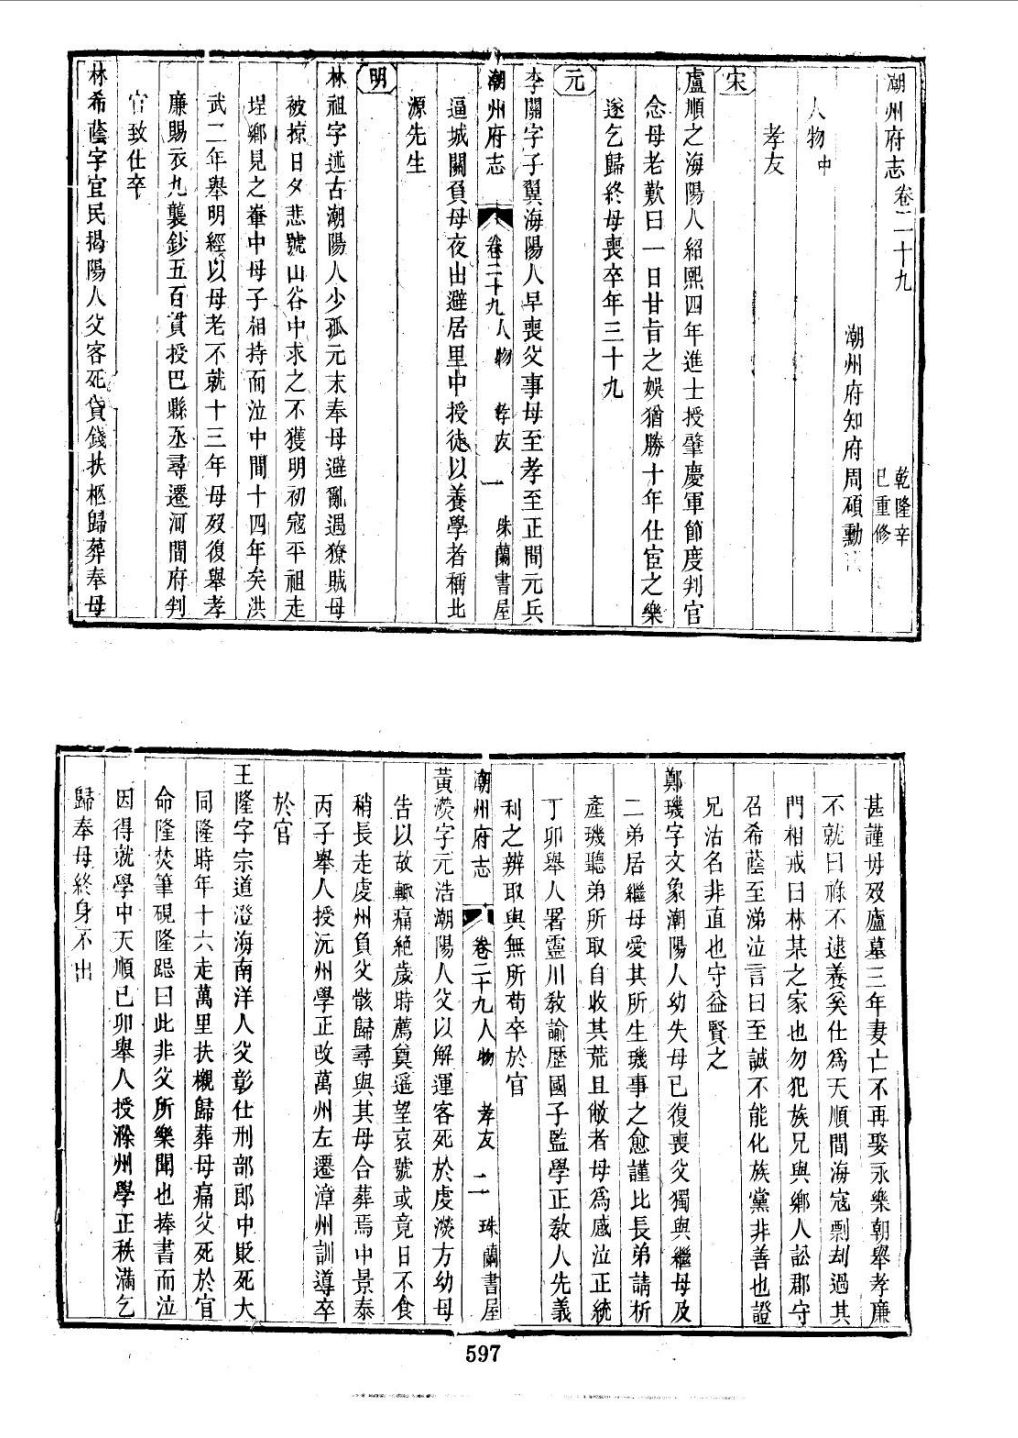 潮州府志 卷二十九
乾隆辛
巳重修
潮州府知府周碩勳
人物中
孝友
宋
盧順之海陽人紹熙四年進士授肇慶軍節度判官
念母老歎曰一日甘旨之娛猶勝十年仕宦之樂
遂乞歸終母喪卒年三十九
元
李關字子翼海陽人早喪父事母至孝至正間元兵
潮州府志 卷二十九人物 孝友 一 珠蘭書屋
逼城關負母夜出避居里中授徒以養學者稱北
源先生
明
林祖字述古潮陽人少孤元末奉母避亂遇獠賊母
被掠日夕悲號山谷中求之不獲明初寇平祖走
埕鄉見之輋中母子相持而泣中間十四年矣洪
武二年舉明經以母老不就十三年母歿復舉孝
廉賜衣九襲鈔五百貫授巴縣丞尋遷河間府判
官致仕卒
林希蔭字宜民揭陽人父客死貸錢扶柩歸葬奉母
甚謹母歿廬墓三年妻亡不再娶永樂朝舉孝廉
不就曰祿不逮養奚仕爲天順間海寇剽刦過其
門相戒曰林某之家也勿犯族兄與鄉人訟郡守
召希蔭至涕泣言曰至誠不能化族黨非善也證
兄沽名非直也守益賢之
鄭璣字文象潮陽人幼失母已復喪父獨與繼母及
二弟居繼母愛其所生璣事之愈謹比長弟請析
產璣聽弟所取自收其荒且敝者母爲感泣正統
丁卯舉人署靈川敎諭歷國子監學正敎人先義
利之辨取與無所苟卒於官
潮州府志 卷二十九人物 孝友 二 珠蘭書屋
黃濙字元浩潮陽人父以解運客死於虔濙方幼母
告以故輒痛絕歲時薦奠遙望哀號或竟日不食
稍長走虔州負父骸歸尋與其母合葬焉中景泰
丙子舉人授沅州學正改萬州左遷漳州訓導卒
於官
王隆字宗道澄海南洋人父彰仕刑部郎中貶死大
同隆時年十六走萬里扶櫬歸葬母痛父死於官
命隆焚筆硯隆跽曰此非父所樂聞也捧書而泣
因得就學中天順己卯舉人授滁州學正秩滿乞
歸奉母終身不出
597